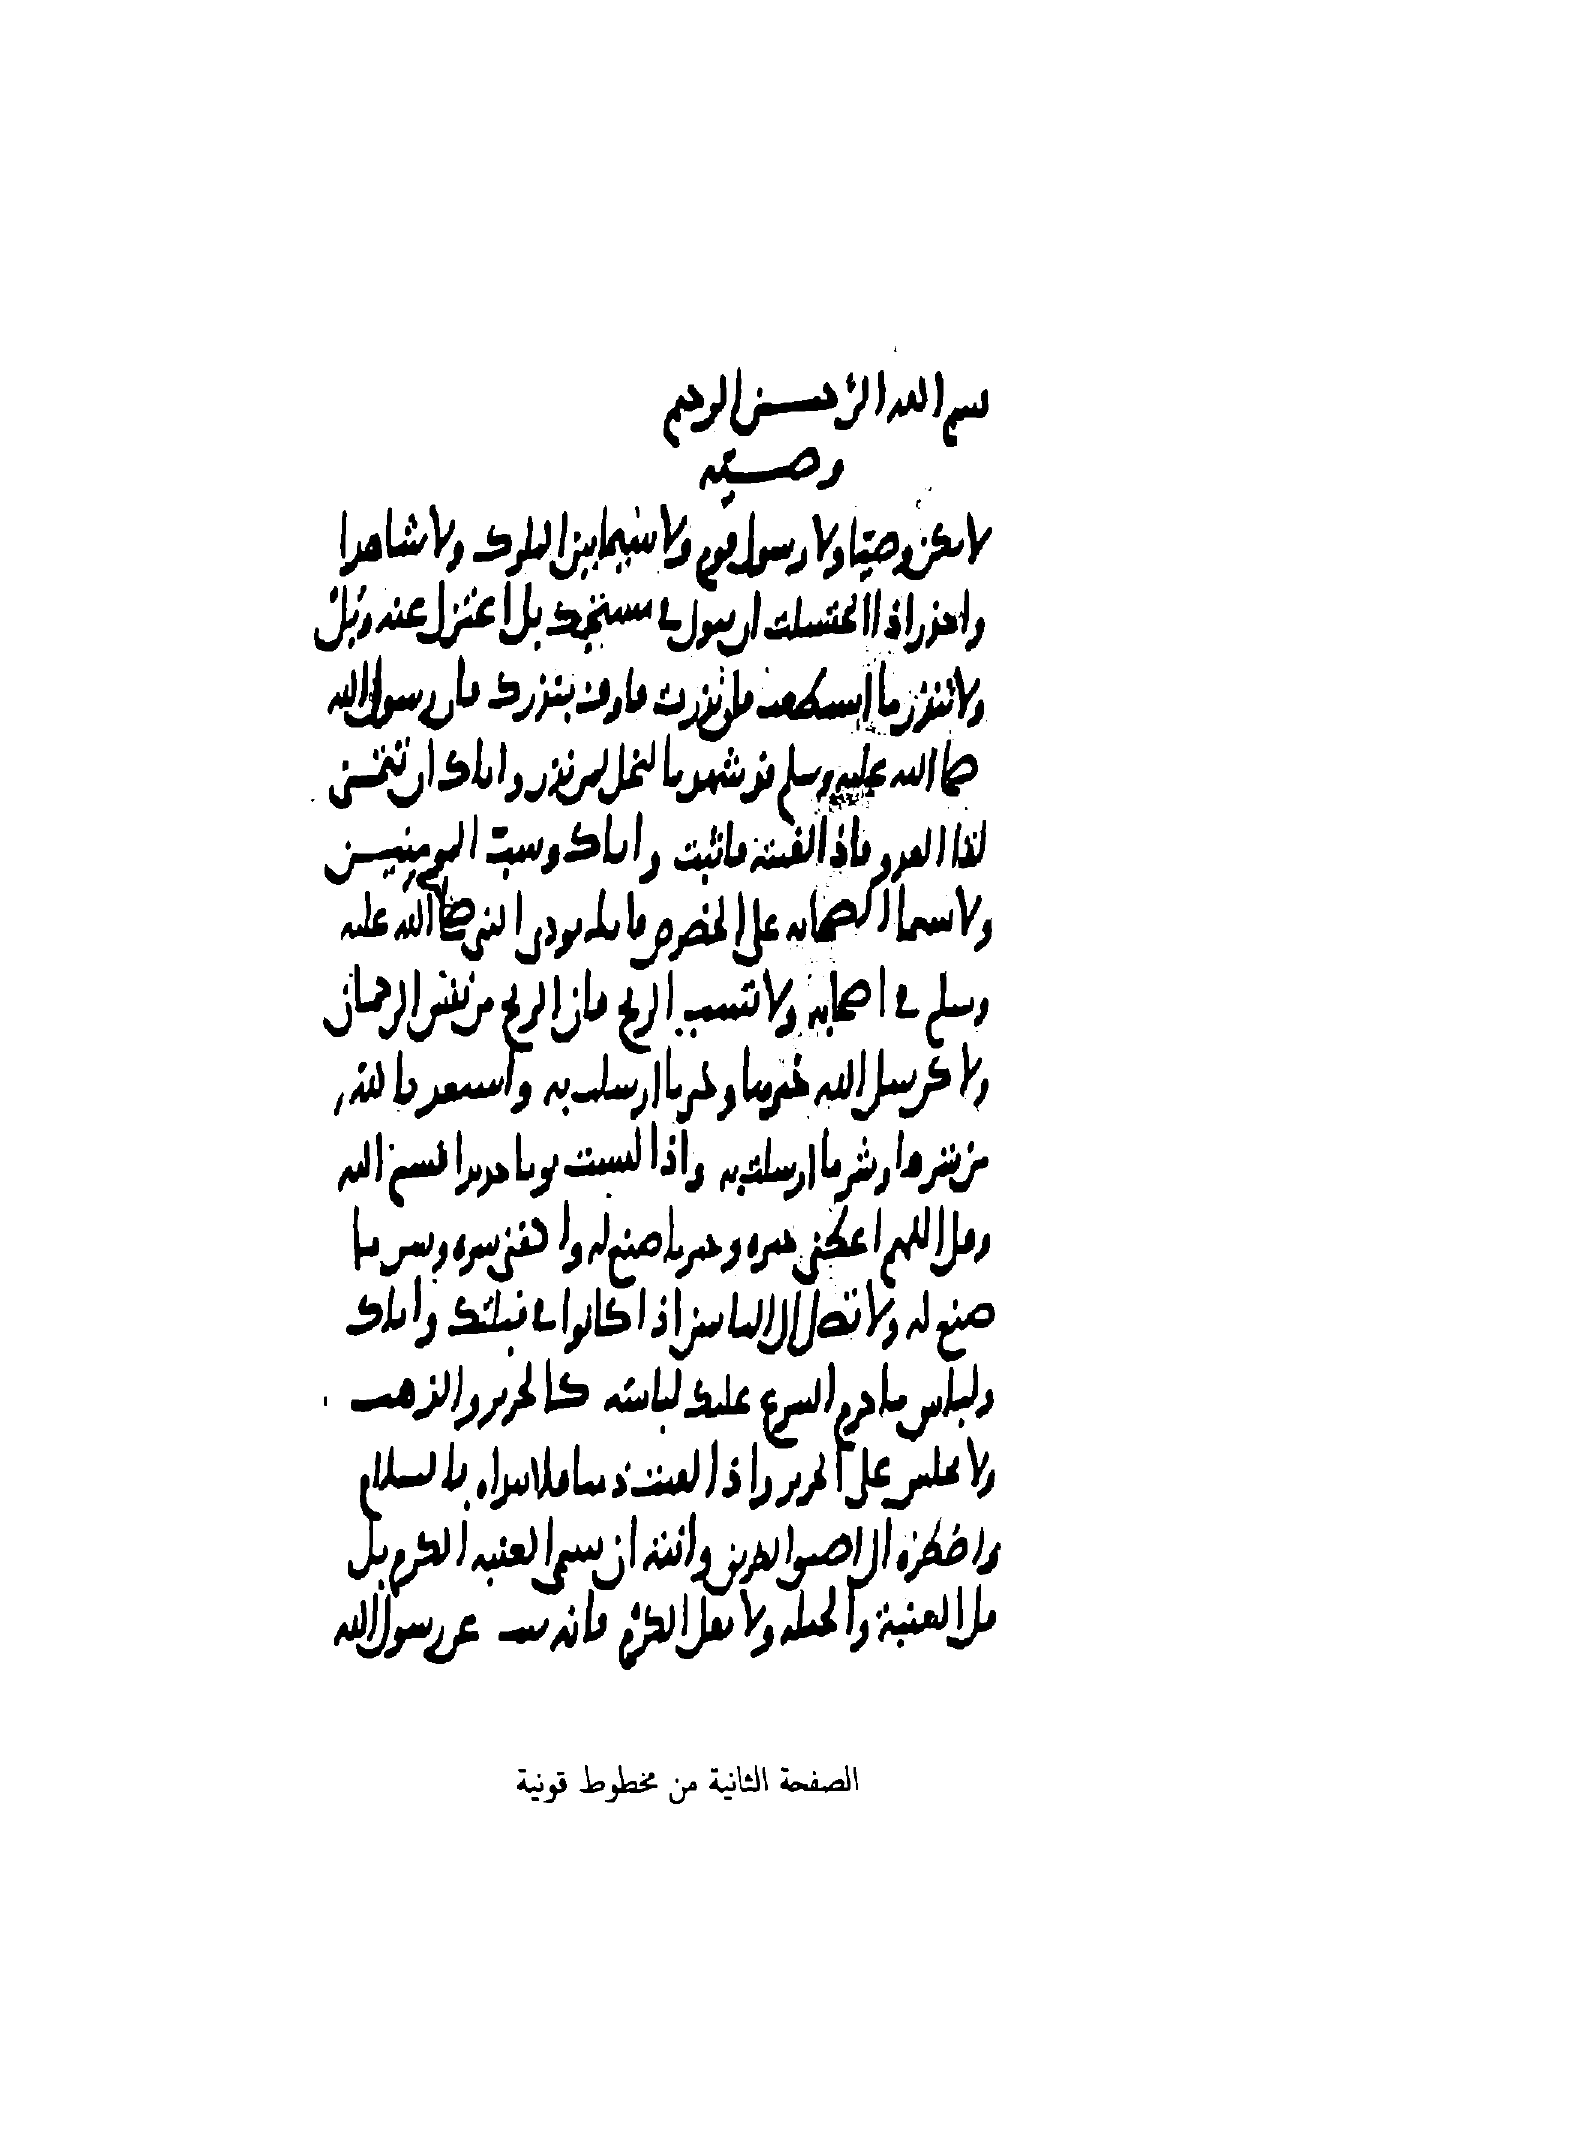 بسم الله الرحمن الرحيم
وصية
لا تكن وصيا ولا رسول قوم ولا سيما بين الملوك ولا شاهدا
واحذر اذا اغتسلت ان تبول في مستحمك بل اعتزل عنه وبل
ولا تنذر ما استطعت فان نذرت فاوف بنذرك فان رسول الله
صلى الله عليه وسلم قد شهد بالبخل لمن نذر واياك ان تتمنى
لقا العدو فاذا لقيته فاثبت واياك وسب المومنين
ولا سيما الصحابة على الخصوص فانك توذي النبي صلى الله عليه
وسلم في اصحابه ولا تسب الريح فان الريح من نفس الرحمان
ولاكن سل الله خيرها وخير ما ارسلت به واستعذ بالله
من شرها وشر ما ارسلت به واذا لبست ثوبا جديدا فسم الله
وقل اللهم اعطني خيره وخير ما صنع له واكفني شره وشر ما
صنع له ولا تصل الى النايمين اذا كانوا في قبلتك واياك
ولباس ما حرم الشرع عليك لباسه كالحرير والذهب
ولا تجلس على الحرير واذا لقيت ذميا فلا تبداه بالسلام
واضطره الى اضيق الطريق وانته ان تسمي العنبة الكرم بل
قل العنبة والحبلة ولا تقل الكرم فانه ثبت عن رسول الله
الصفحة الثانية من مخطوط قونية